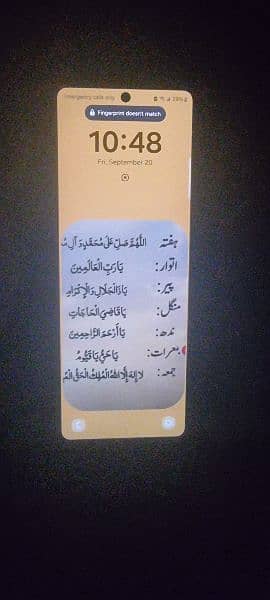 Emergency calls only
29%
Fingerprint doesn't match
10:48
Fri, September 20
ہفتہ اللَّهُمَّ صَلِّ عَلَىٰ مُحَمَّدٍ وَآلِ
اتوار: يَا رَبَّ الْعَالَمِينَ
پیر: يَا ذَا الْجَلَالِ وَالْإِكْرَامِ
منگل: يَا قَاضِيَ الْحَاجَاتِ
بدھ: يَا أَرْحَمَ الرَّاحِمِينَ
جمعرات: يَا حَيُّ يَا قَيُّومُ
جمعہ: لَا إِلَٰهَ إِلَّا اللهُ الْمَلِكُ الْحَقُّ